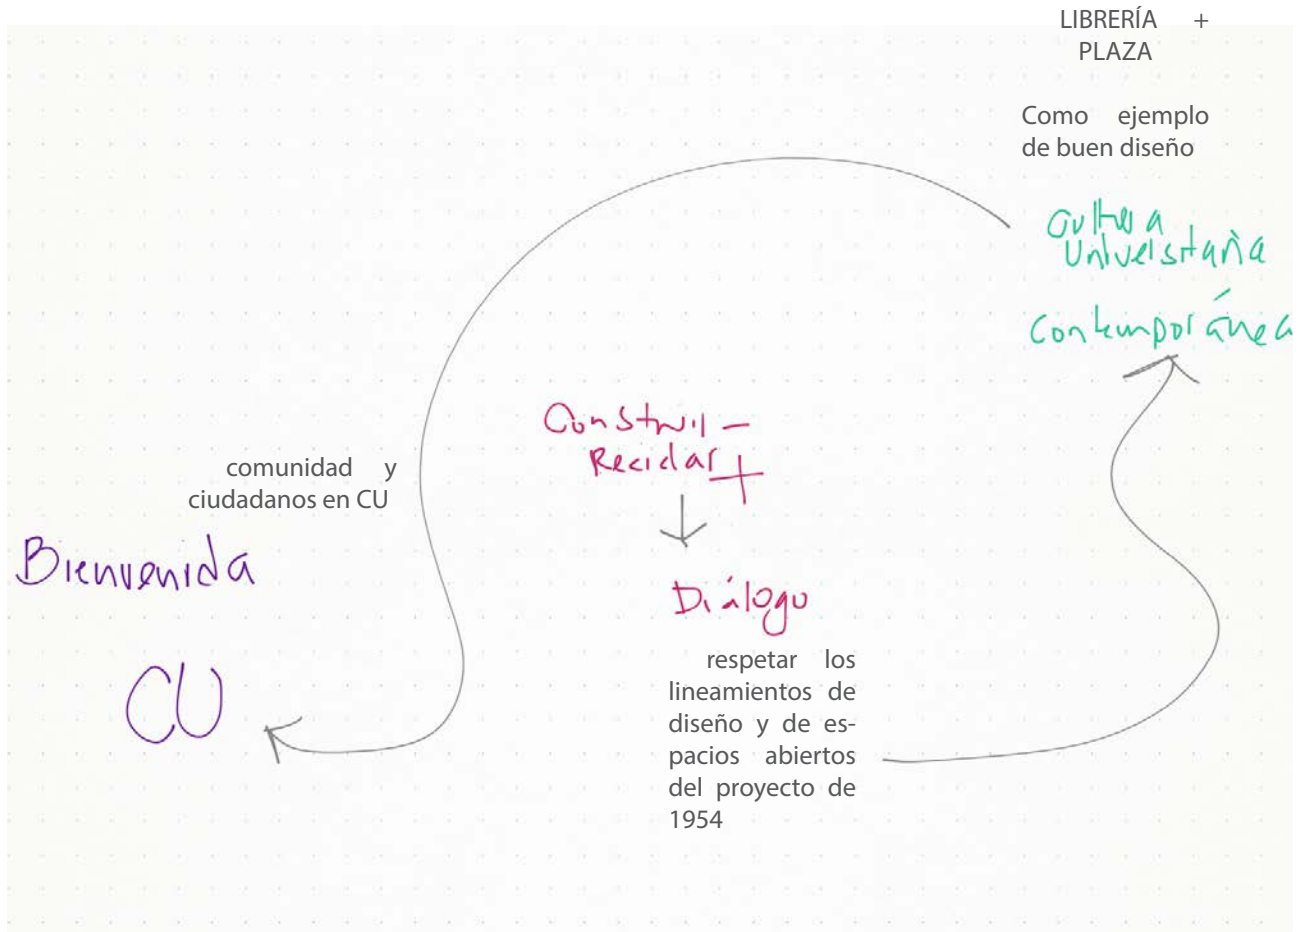 LIBRERÍA +
PLAZA
Como ejemplo
de buen diseño
Cultura
Universitaria
Contemporánea
Construir –
Reciclar +
comunidad y
ciudadanos en CU
Bienvenida
CU
Diálogo
respetar los
lineamientos de
diseño y de es-
pacios abiertos
del proyecto de
1954